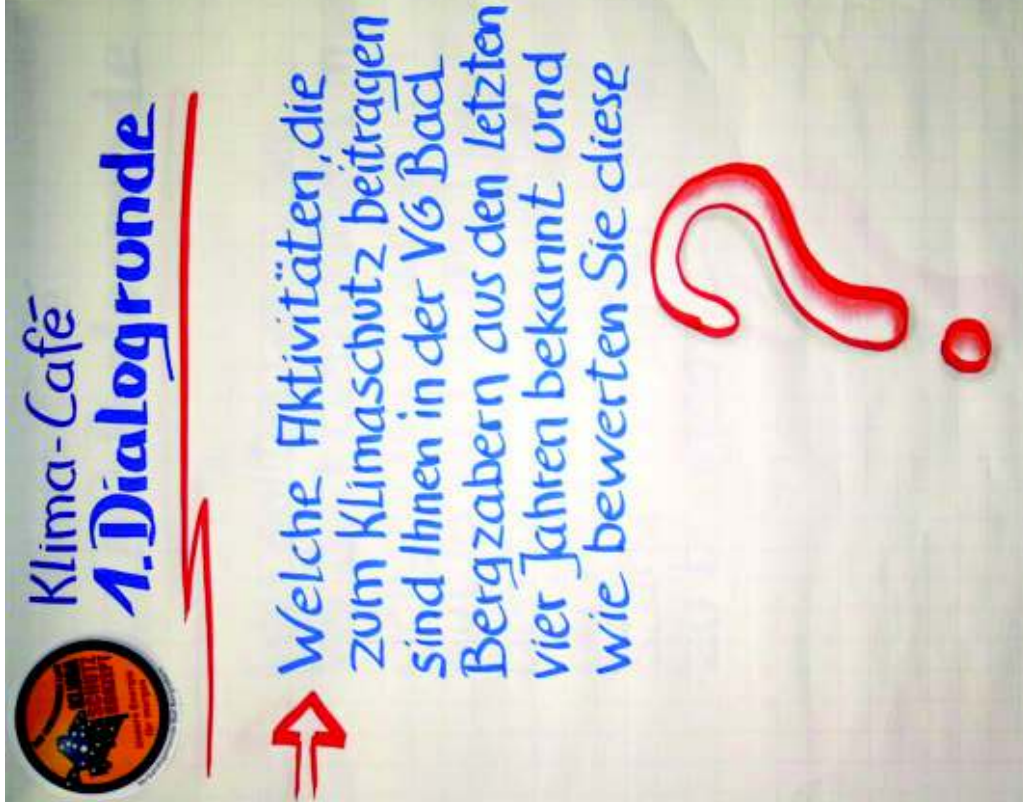 Klima-Café
1. Dialogrunde
Welche Aktivitäten, die
zum Klimaschutz beitragen
sind Ihnen in der VG Bad
Bergzabern aus den letzten
vier Jahren bekannt und
wie bewerten Sie diese
?